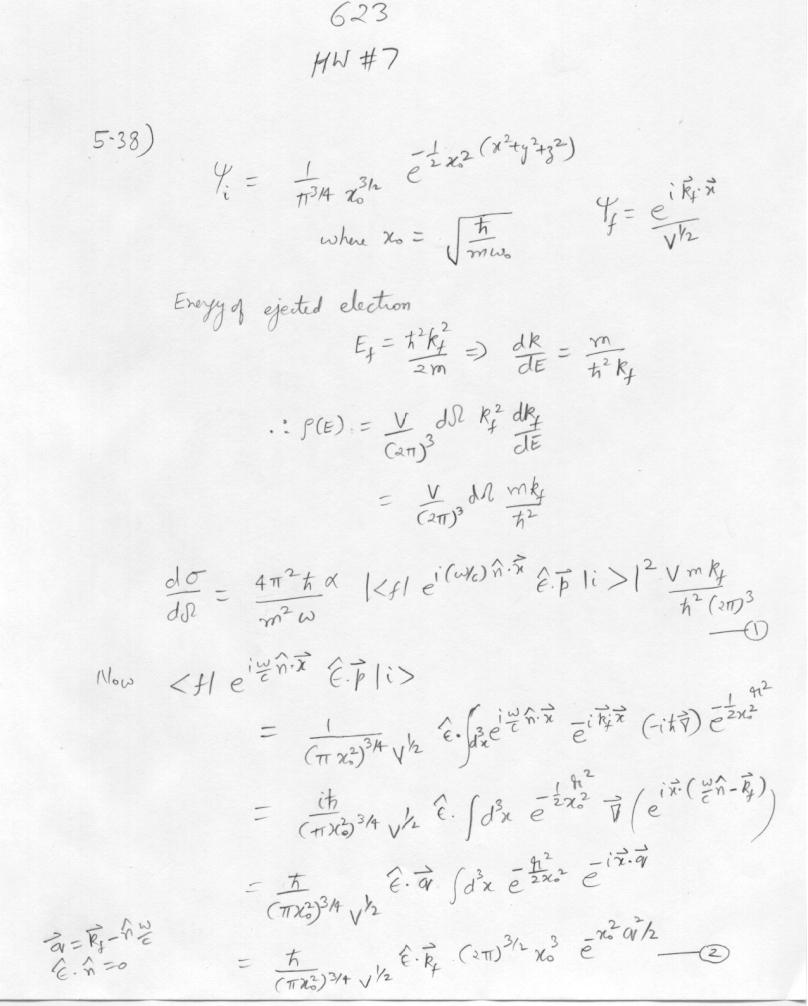 623
HW #7
5-38)
ψ_i = 1/(π^{3/4} x_0^{3/2}) e^{-1/(2 x_0^2) (x^2+y^2+z^2)}
where x_0 = √(ħ/(mω_0))    ψ_f = e^{i k⃗_f·x⃗}/V^{1/2}
Energy of ejected electron
E_f = ħ^2 k_f^2/(2m) ⇒ dk/dE = m/(ħ^2 k_f)
∴ ρ(E) = V/(2π)^3 dΩ k_f^2 dk_f/dE
= V/(2π)^3 dΩ m k_f/ħ^2
dσ/dΩ = (4π^2 ħ α)/(m^2 ω) |<f| e^{i(ω/c) n̂·x⃗} ε̂·p⃗ |i>|^2 V m k_f/(ħ^2 (2π)^3) —①
Now <f| e^{i ω/c n̂·x⃗} ε̂·p⃗ |i>
= 1/((π x_0^2)^{3/4} V^{1/2}) ε̂·∫d^3x e^{i ω/c n̂·x⃗} e^{-i k⃗_f·x⃗} (-iħ∇⃗) e^{-1/(2x_0^2) r^2}
= iħ/((π x_0^2)^{3/4} V^{1/2}) ε̂·∫d^3x e^{-1/(2x_0^2) r^2} ∇⃗ (e^{i x⃗·(ω/c n̂ - k⃗_f)})
= ħ/((π x_0^2)^{3/4} V^{1/2}) ε̂·q⃗ ∫d^3x e^{-r^2/(2x_0^2)} e^{-i x⃗·q⃗}
q⃗ = k⃗_f - n̂ ω/c
ε̂·n̂ = 0
= ħ/((π x_0^2)^{3/4} V^{1/2}) ε̂·k⃗_f (2π)^{3/2} x_0^3 e^{-x_0^2 q^2/2} —②